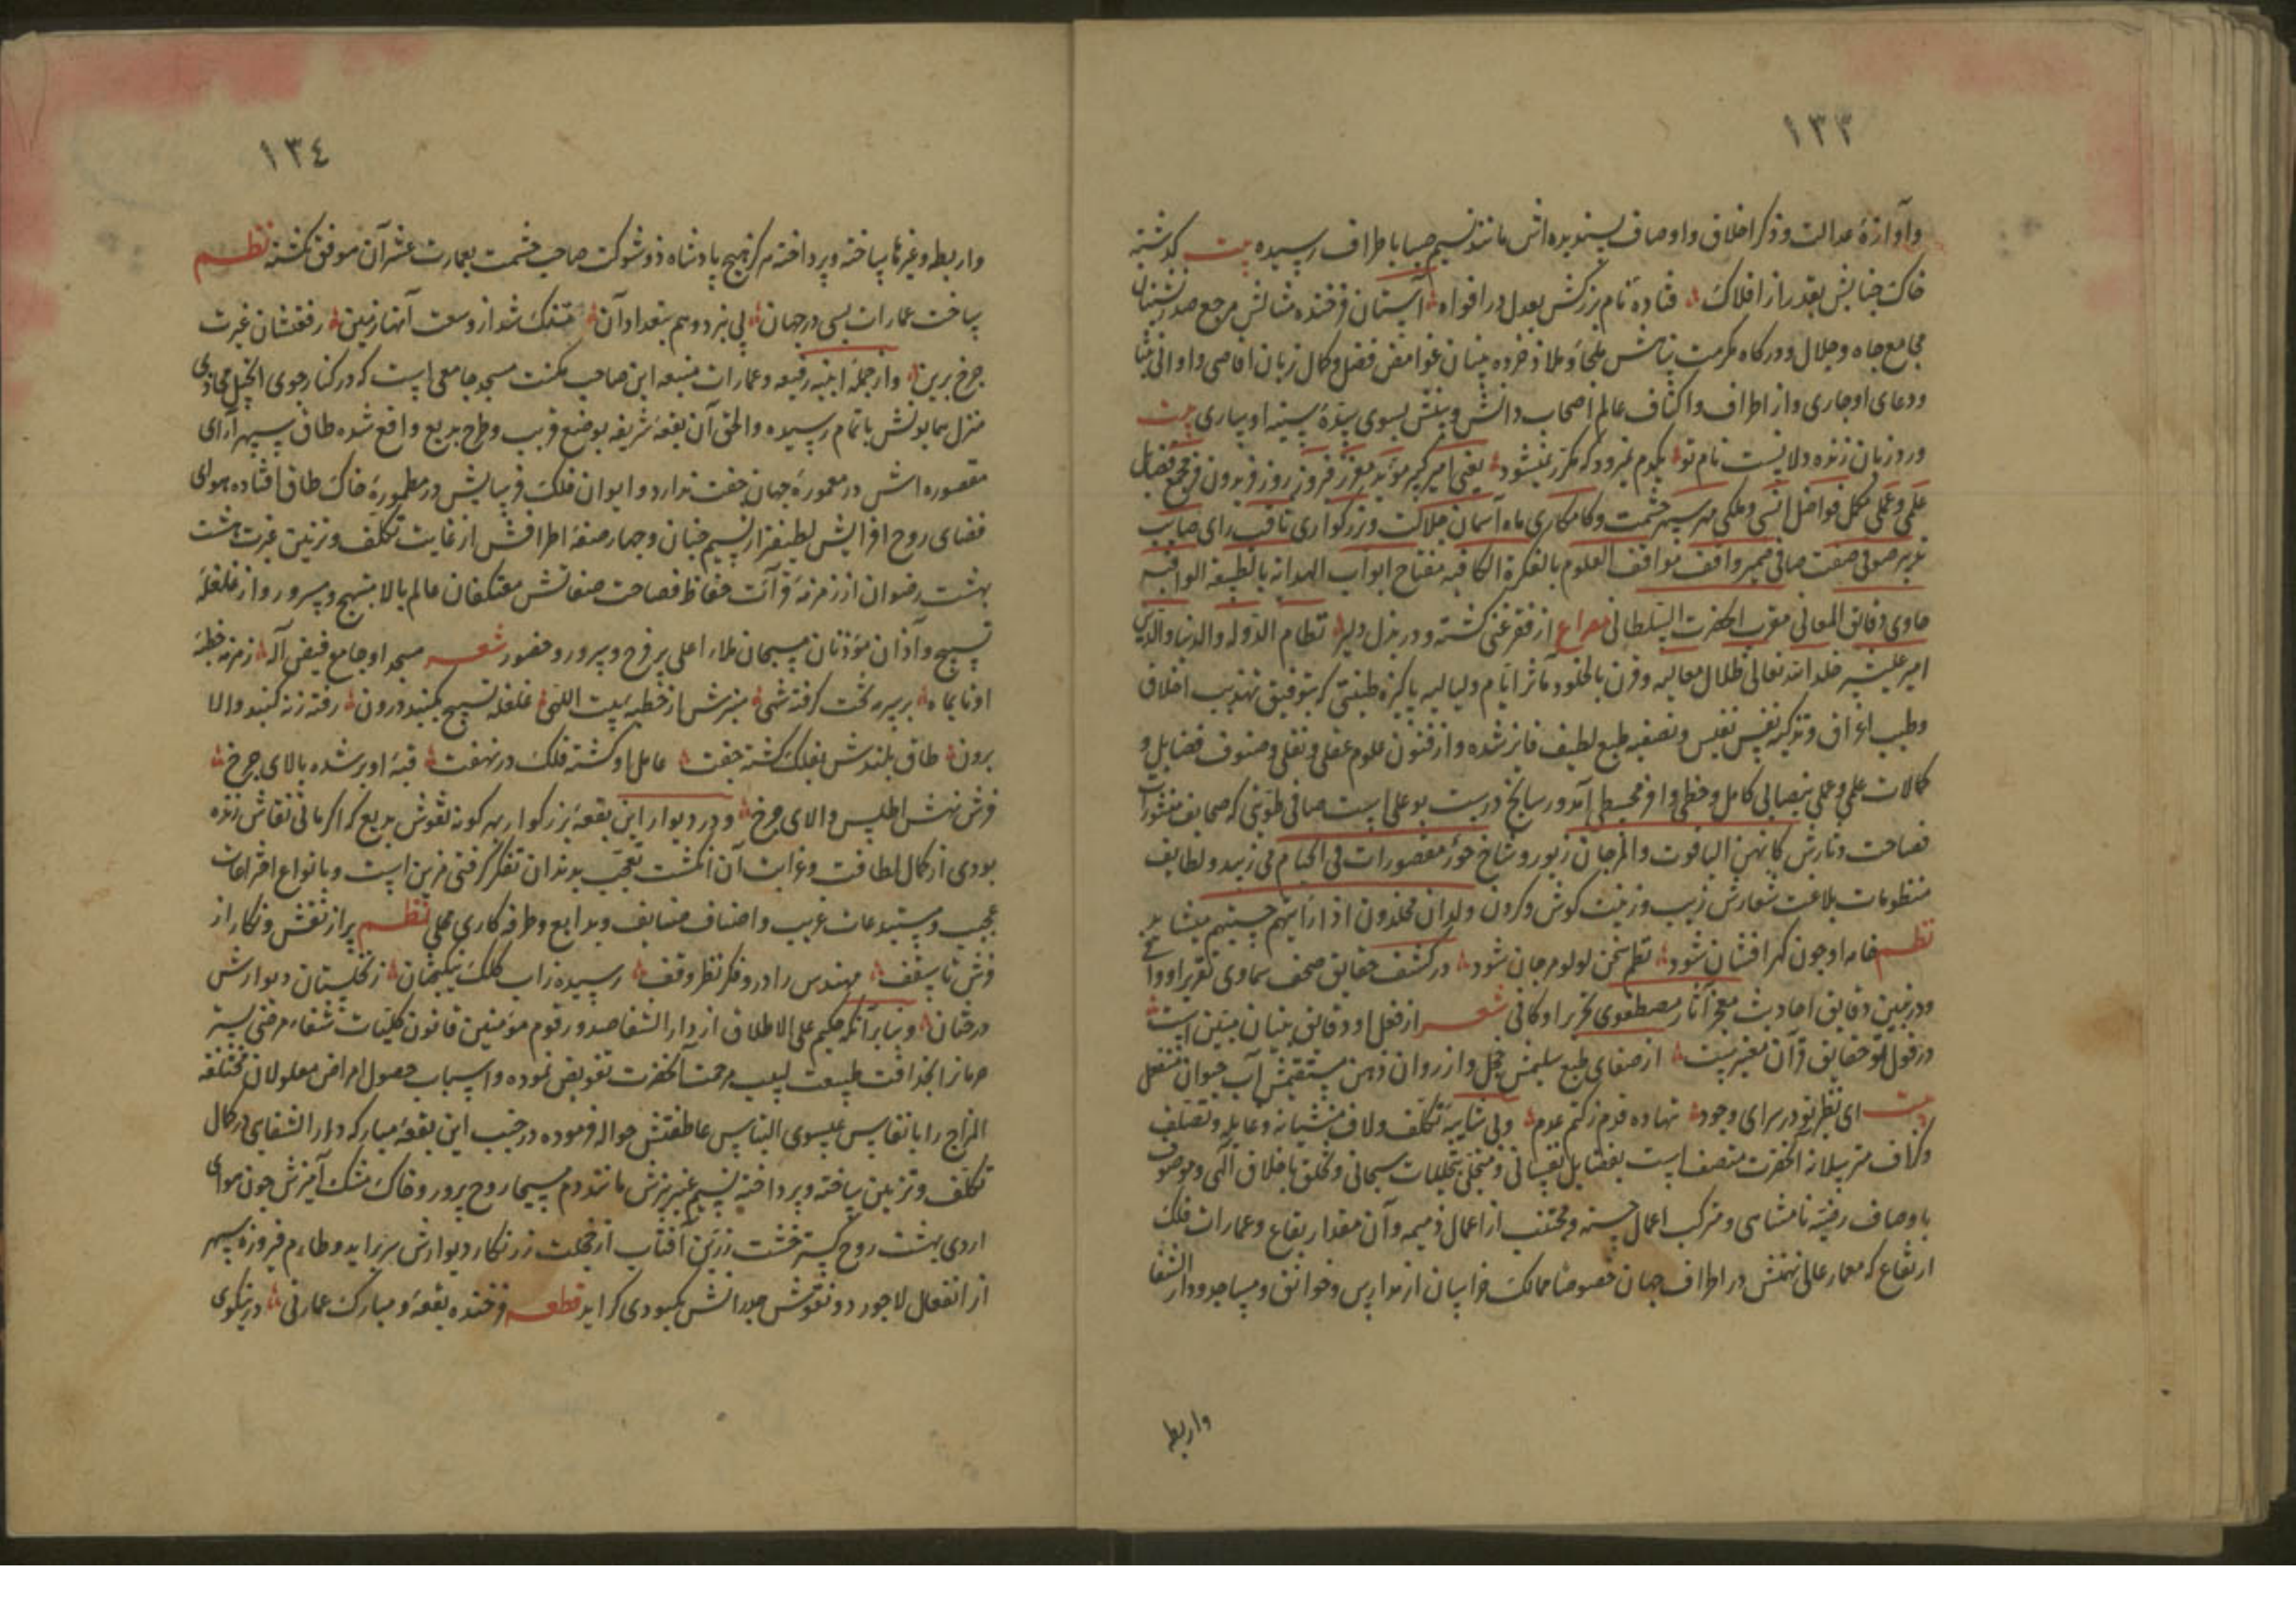 ١٣٣
وآوازهٔ عدالت وذكر اخلاق واوصاف پسنديده اش مانند نسيم صبا باطراف رسيده بيت كذشته
خاك جنابش بقدر از افلاك فتاده نام بزركش بعدل در افواه آستان فرخنده مرجع صدرنشينان
مجامع جاه وجلال ودركاه مكرمت پناهش ملجأ وملاذ خرده بينان غوامض فضل وكمال زبان اقاصى واوانى بثنا
ودعاى او جارى واز اطراف واكناف عالم اصحاب دانش وبينش بسوى سدّهٔ سنيه او سارى بيت
ورد زبان زنده دلانست نام تو يكدم نميرود كه مكرر نميشود يعنى امير كبير مؤيد معزز فيروز روز فريدون فر مجمع فضايل
علمى وعملى مكمل فواضل انسى وملكى مهر سپهر حشمت وكامكارى ماه آسمان جلالت وبزركوارى ثاقب راى صايب
تدبير صوفى صفت صافى ضمير واقف مواقف العلوم بالفكرة مفتاح ابواب الهداية
حاوى دقايق المعانى مقرب الحضرت السلطانى مصراع از فقر غنى كشته ودر بذل دلير نظام الدوله والدنيا والدين
امير عليشير خلد الله تعالى ظلال معاليه وقرن بالخلود مآثر ايّام ولياليه پاكيزه طينتى كه بتوفيق تهذيب اخلاق
وطيب اعراق وتزكيه نفس نفيس وتصفيه طبع لطيف فايز شده واز فنون علوم عقلى ونقلى وصنوف فضايل و
كمالات علمى وعملى بنصابى كامل وحظى وافر محيط آمد ودر سانح بو على است صافى كه صحايف منثورات
فصاحت دثارش كانهن الياقوت والمرجان زيور وشاح حور مقصورات فى الخيام مى زيبد ولطايف
منظومات بلاغت شعارش زيب وزينت كوش وكردن ولدان مخلدون اذا رأيتهم حسبتهم ميشايد
نظم خامه او چون كهر افشان شود نظم سخن لولو ومرجان شود در كشف حقايق صحف سماوى تقرير او
ودر تبيين دقايق احاديث معجز آثار مصطفوى تحرير او كافى شعر از فعل او دقايق بنيان مبيّن است
در قول او حقايق قرآن از صفاى طبع سليمش خجل واز روان ذهن مستقيمش آب حيوان منفعل
بيت اى نظير تو در سراى وجود نهاده قدم ز كتم عدم وبى شايبه تكلف ولاف وتصلف
وكزاف آنحضرت متصف است بفضايل نفسانى ومتجلى بتجليات سبحانى وتخلق باخلاق الهى وموصوف
باوصاف نامتناهى ومرتكب اعمال حسنه ومجتنب از اعمال ذميمه وآن مقدار بقاع وعمارات فلك
ارتفاع كه معمار عالى نهمتش در اطراف جهان خصوصا ممالك خراسان از مدارس وخوانق ومساجد ودار الشفا
واربطه
١٣٤
واربطه وغيرها ساخته وپرداخته هركز هيچ پادشاه ذو شوكت صاحب حشمت بعمارت عشر آن موفق نكشته نظم
ساخت عمارات بسى در جهان پى نبرد وهم بتعداد آن تنك شد از وسعت آنها زمين رفعتشان غيرت
چرخ برين واز جمله ابنيه رفيعه وعمارات منيعه اين صاحب مكنت مسجد جامعى است كه در كنار جوى انجيل محاذى
منزل همايونش باتمام رسيده والحق آن بقعه شريفه بوضع غريب وطرح بديع واقع شده طاق سپهر آراى
مقصوره اش در معمورهٔ جهان جفت ندارد وايوان فلك فرسايش در مطمورهٔ خاك طاق افتاده هواى
فضاى روح افزايش لطيفتر از نسيم جنان وچهار صفه اطرافش از غايت تكلف وتزيين غيرت هشت
بهشت رضوان از زمزمه قرائت حفاظ فصاحت صفاتش معتكفان عالم بالا مبتهج ومسرور واز غلغله
تسبيح وآذان مؤذنان مسبحان ملاء اعلى پر فرح وسرور وحضور شعر مسجد او جامع فيض آله زمزمه خطبه
او تا بماه بر سر ره تخت كرفته شهى منبرش از خطبه بيت اللهى غلغله تسبيح بكنبد درون رفته زنه كنبد والا
برون طاق بلندش بفلك كشته جفت كشته فلك در نهفت قبه او بر شده بالاى چرخ
فرش رهش اطلس والاى چرخ ودر ديوار اين بقعه بزركوار بهر كونه نقوش بديع كه اكر مانى نقاش زنده
بودى از كمال لطافت وغرابت آن انكشت تعجب بدندان تفكر كرفتى مزين است وبانواع اختراعات
عجيب ومستبدعات غريب واصناف صنايف وبدايع وطرفه كارى محلى نظم پر از نقش ونكار از
فرش تا سقف مهندس را درو فكر نظر وقف رسيده ز آب كلك نيكبختان ز نكارستان ديوارش
درختان وبنابر آنكه حكيم على الاطلاق از دار الشفا صدور قوم مؤمنين قانون كليّات شفاء مرضى بستر
حرمان بحذاقت طبيعت لبيب مرحمت آنحضرت تفويض نموده واسباب حصول امراض معلولان مختلفه
المزاج را بانفاس عيسوى التباس عاطفتش حواله فرموده در جنب اين بقعه مباركه دار الشفاى در كمال
تكلف وتزيين ساخته وپرداخته نسيم عنبر بيزش مانند دم مسيحا روح پرور وخاك مشك آميزش چون هواى
اردى بهشت روح كستر خشت زرّين آفتاب از خجلت زر نكار ديوارش وطارم فيروزه سپهر
از انفعال لاجورد ونقوش جدرانش بكبودى كرايد قطعه فرخنده بقعه ومبارك عمارتى در نيكوى